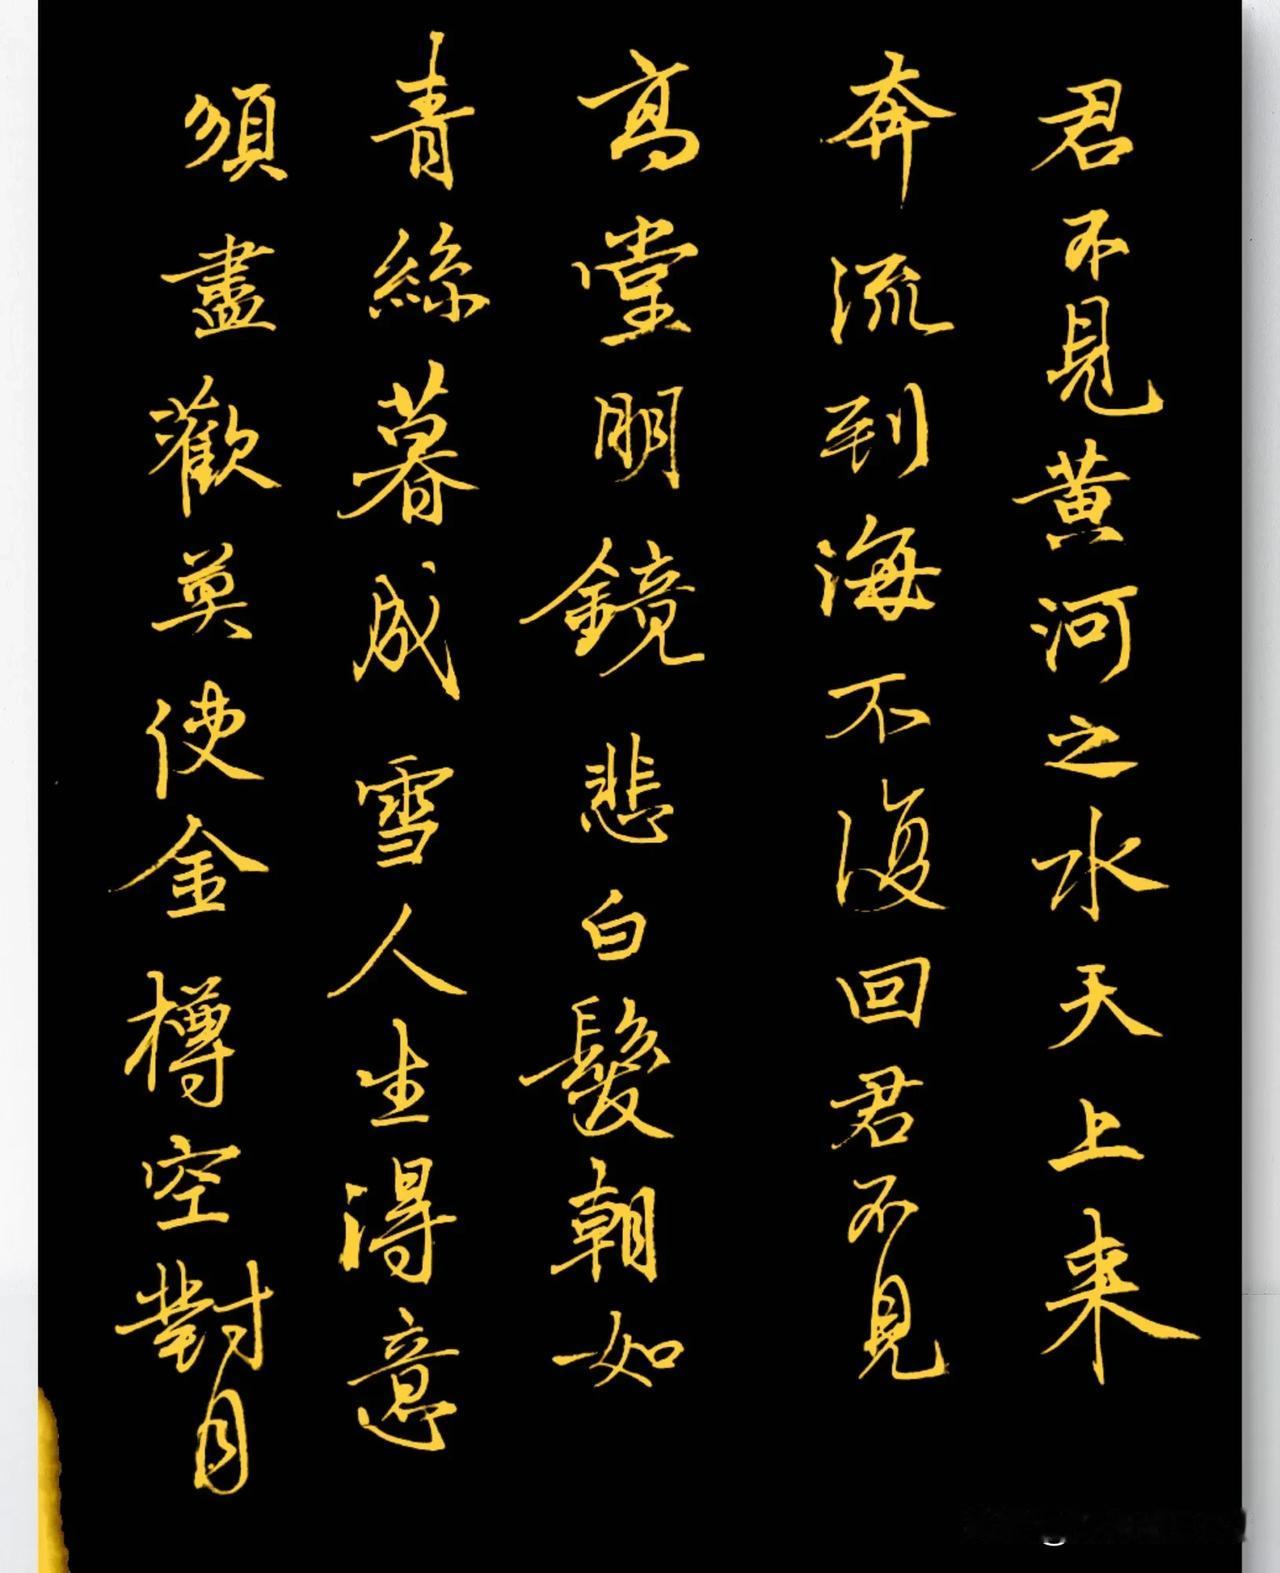 君不見黄河之水天上来
奔流到海不復回君不見
高堂明鏡悲白髮朝如
青絲暮成雪人生得意
須盡歡莫使金樽空對月